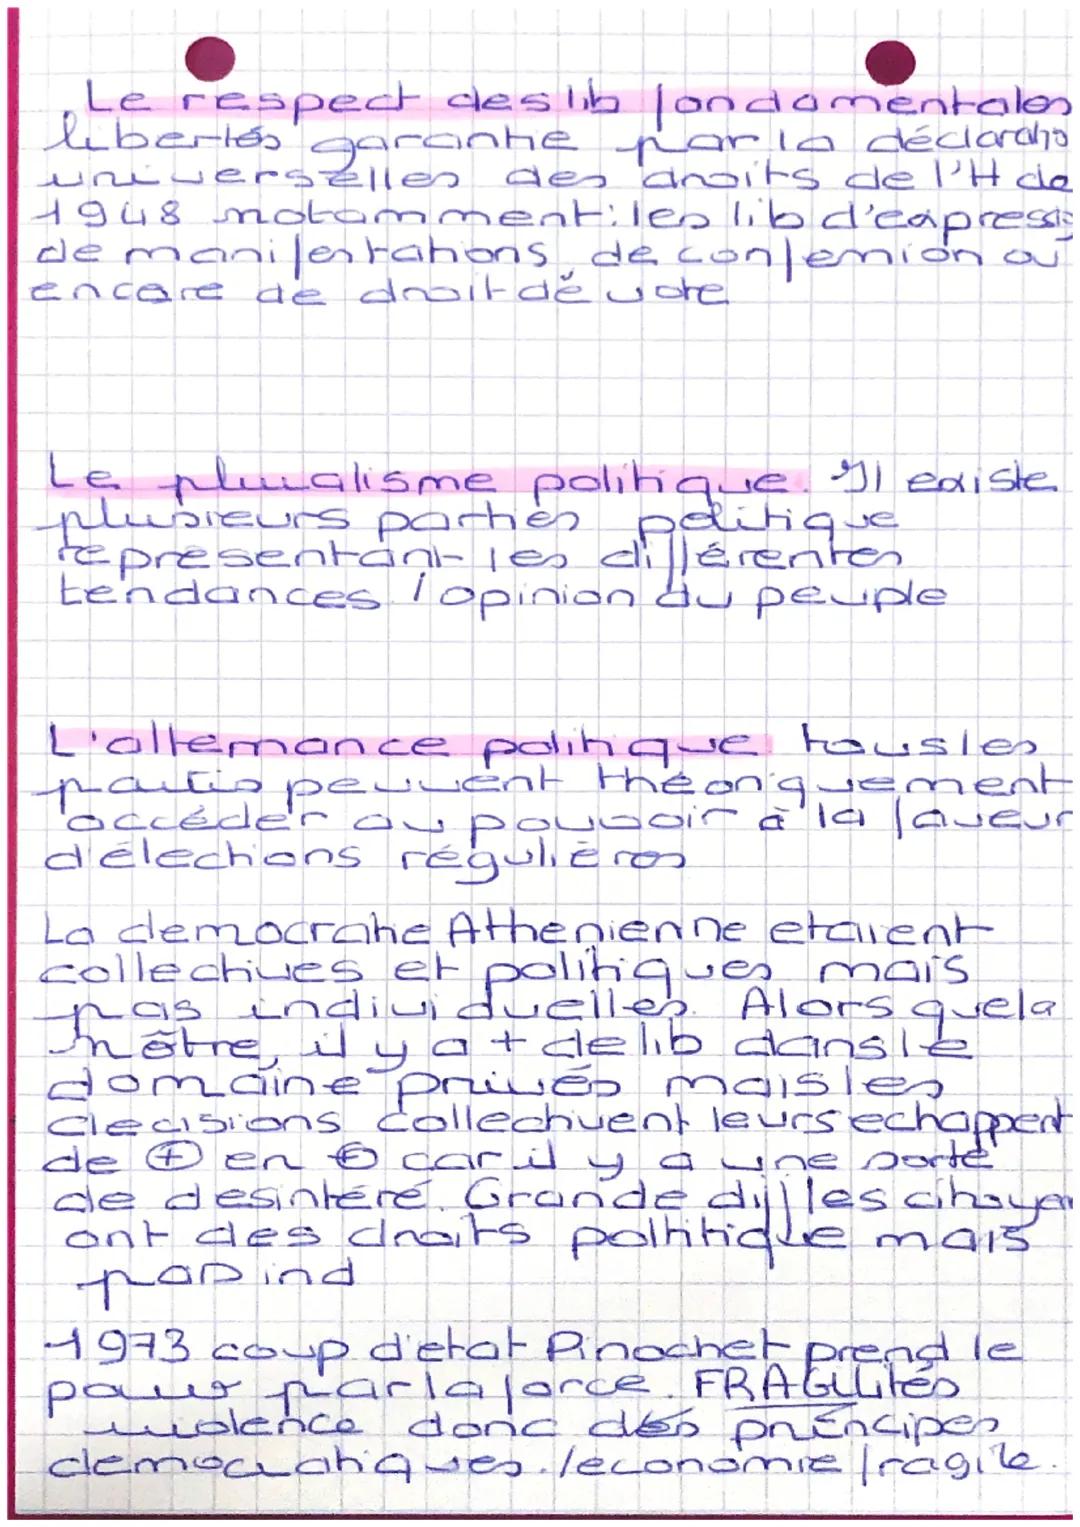 Le respect des lib fondamentales
libertés garantie par la déclaratio
universelles des droits de l'H de
1948 notamment: les lib d'expressio
de manifestations de confession ou
encore de droit de vote
Le pluralisme politique. Il existe
plusieurs parties politique
représentant les différentes
tendances / opinion du peuple
L'alternance politique tous les
partis peuvent théoriquement
accéder au pouvoir à la faveur
d'élections régulières
La democratie Athenienne etaient
collectives et politiques mais
pas individuelles. Alors que la
nôtre, il y a + de lib dans le
domaine privés mais les
decisions collectivent leurs echappent
de + en + car il y a une sorte
de desintéré. Grande diff les citoyen
ont des droits polititique mais
pas ind
1973 coup d'etat Pinochet prend le
par la force. FRAGILités
violence donc des principes
democratiques. / economie fragile.